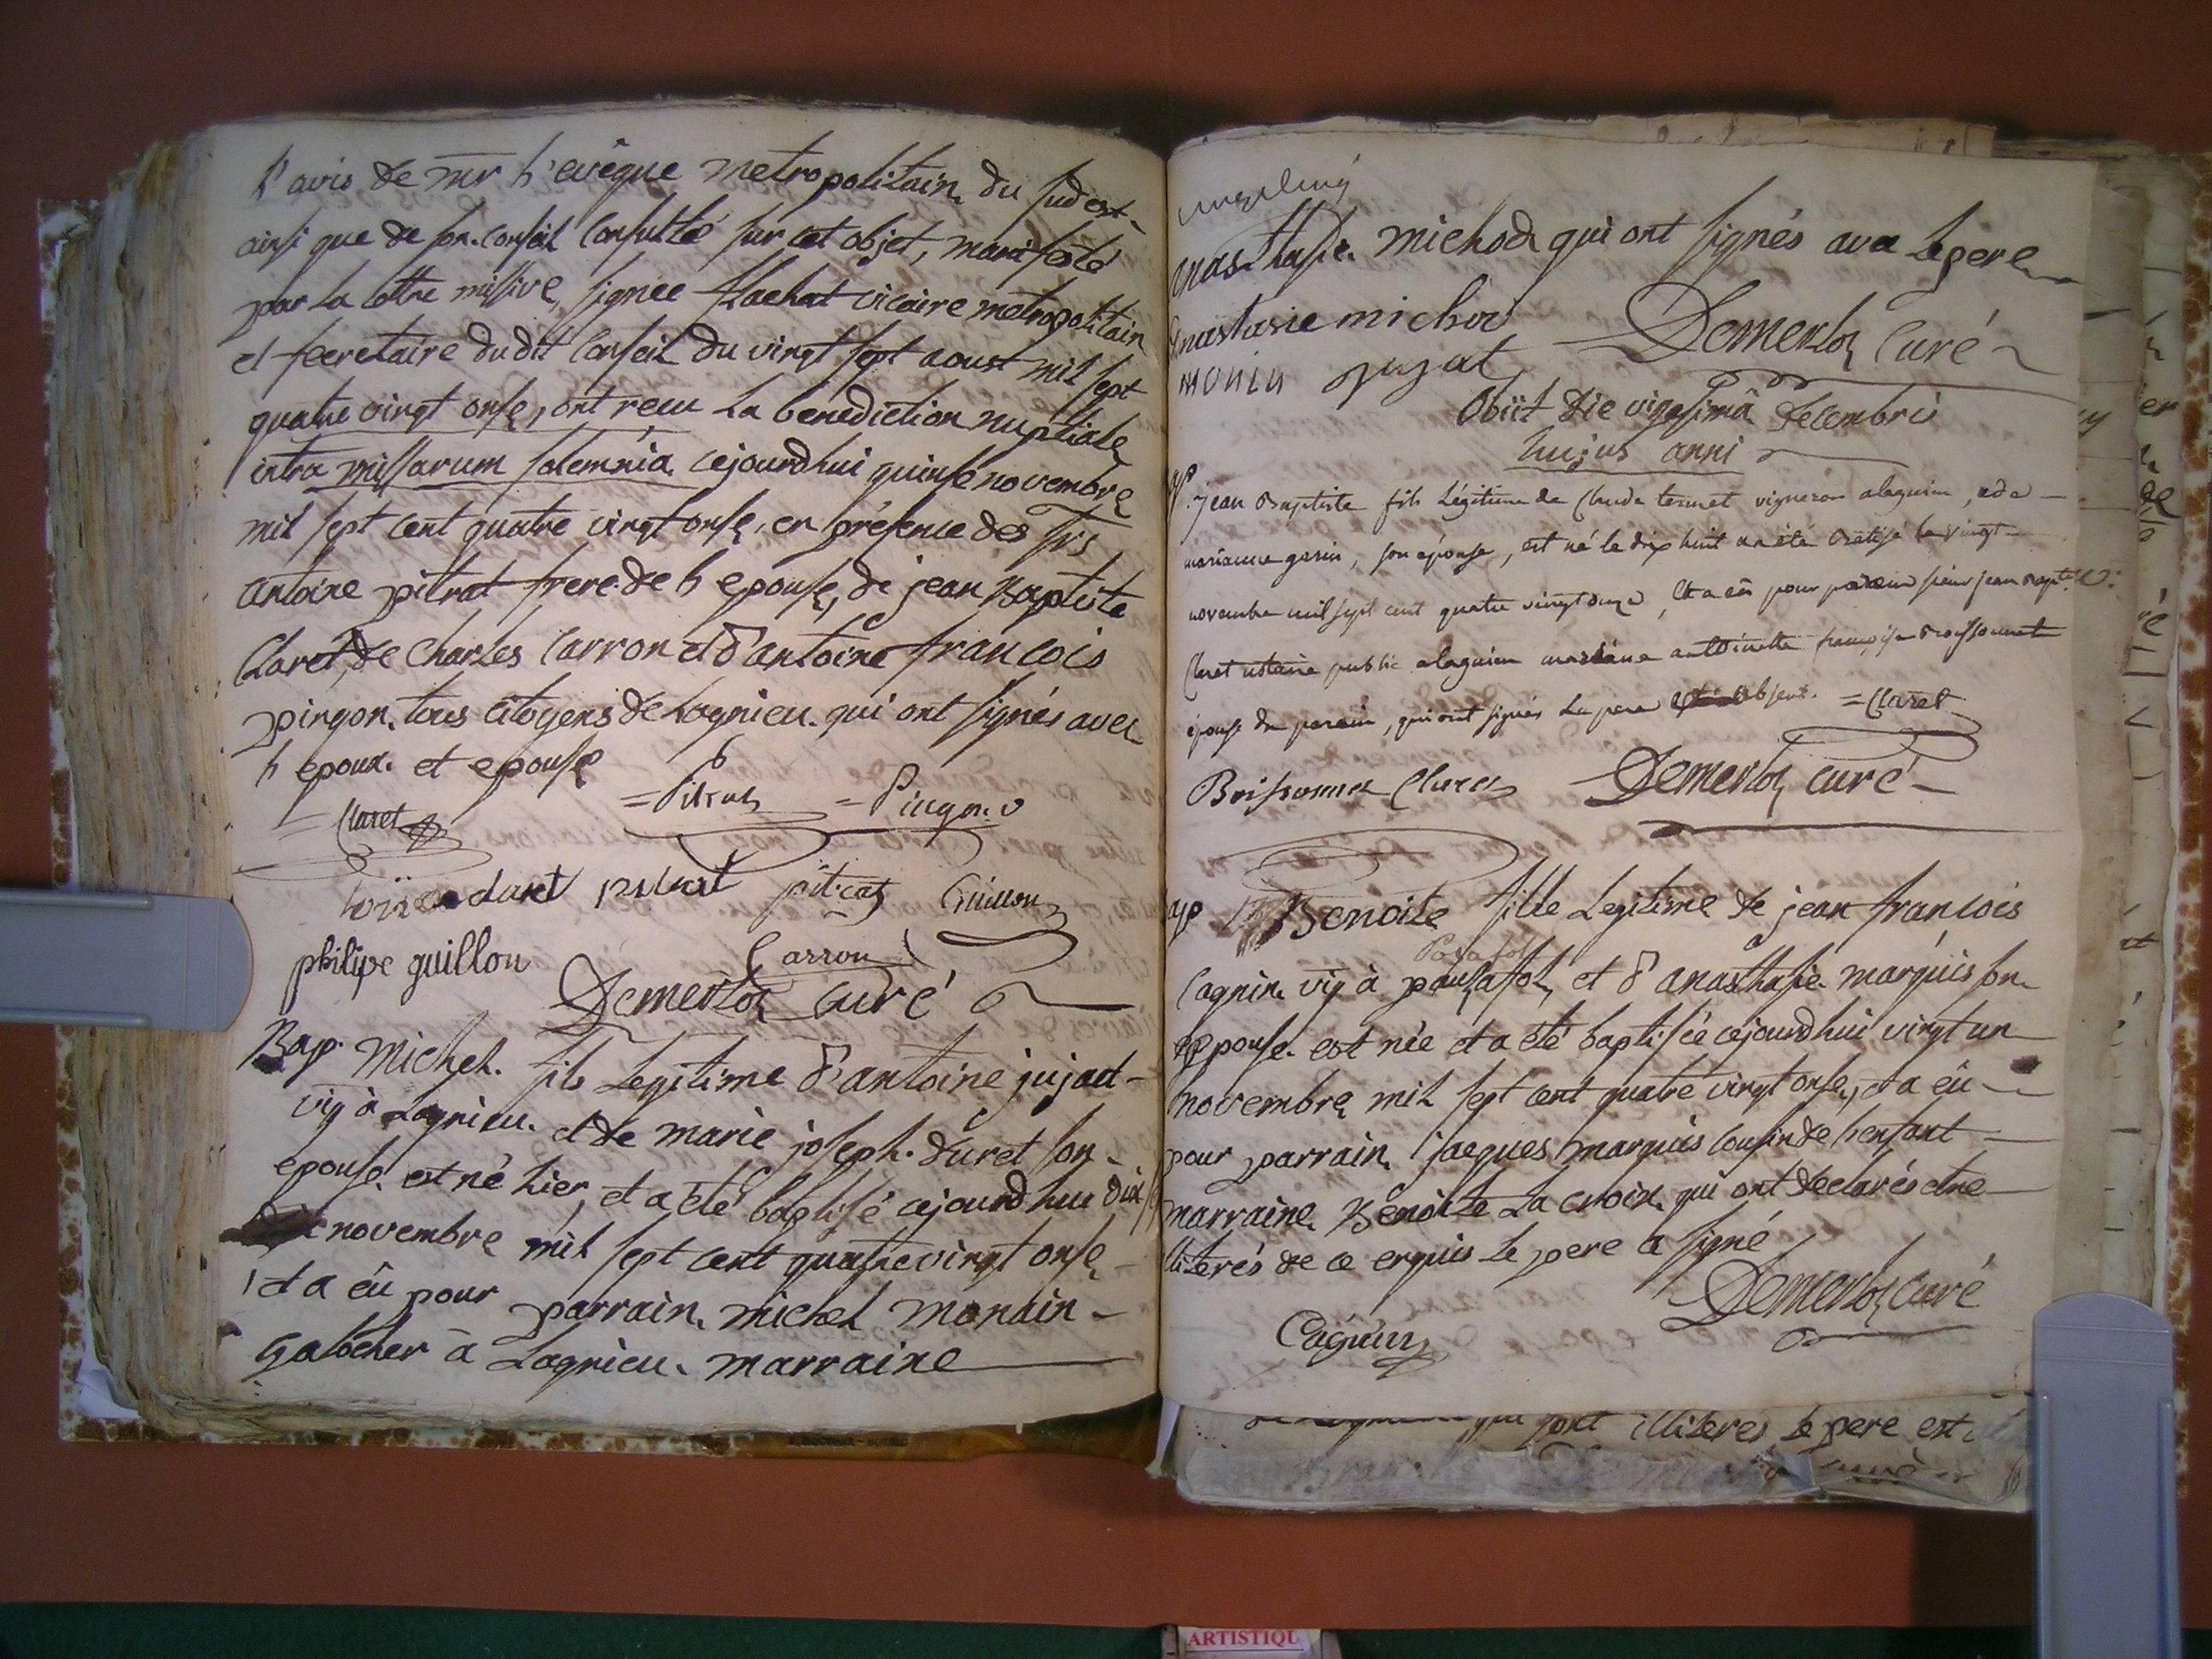 L'avis de mr l'evêque metropolitain du sud est
ainsi que de son conseil consulté sur cet objet, manifesté
par la lettre missive, signée flachat vicaire metropolitain
et secretaire dudit conseil du vingt sept aoust mil sept
quatre vingt onse, ont recu la benediction nuptiale
intra missarum solemnia cejourdhui quinse novembre
mil sept cent quatre vingt onse, en présence des srs
antoine pitrat frere de l'epouse, de jean Baptiste
Claret, de Charles Carron et d'antoine francois
pingon, tous citoyens de Lagnieu qui ont signés avec
l'epoux et epouse
= Claret = Pitrat = Pingon
claret pitrat Guillon
philipe guillon Carron
Demerloz curé
Bap. Michel fils Legitime d'antoine jujat
vig à Lagnieu et de marie joseph duret son
epouse est né hier, et a été baptisé cejourdhui dix
novembre mil sept cent quatre vingt onse
et a êu pour parrain michel monain
galocher à Lagnieu marraine
anasthasie michod qui ont signés avec le pere
anastasie michod Demerloz Curé
monin jujat
Obiit die vigesimâ decembris
hujus anni
jean Baptiste fils légitime de Claude termet vigneron alagnieu, et de
marianne garin, son épouse, est né le dix huit a été batisé le vingt
novembre mil sept cent quatre vingt onze, et a eû pour parain sieur jean bapte
Claret notaire public alagnieu maraine antoinette françoise Broissonnet
épouse du parain, qui ont signés le pere absent. = Claret
Brissonnet Claret Demerloz curé
Bap Benoite fille Legitime de jean francois
Cagnin vig à pousafol et d'anasthasie marquis son
epouse est née et a été baptisée cejourdhui vingt un
novembre mil sept cent quatre vingt onse, et a êu
pour parrain jacques marquis cousin de l'enfant
marraine Benoite La croix qui ont declarés etre
lliterés de ce enquis le pere a signé
Cagnin Demerloz curé
qui sont illiteres le pere est
ARTISTIQU